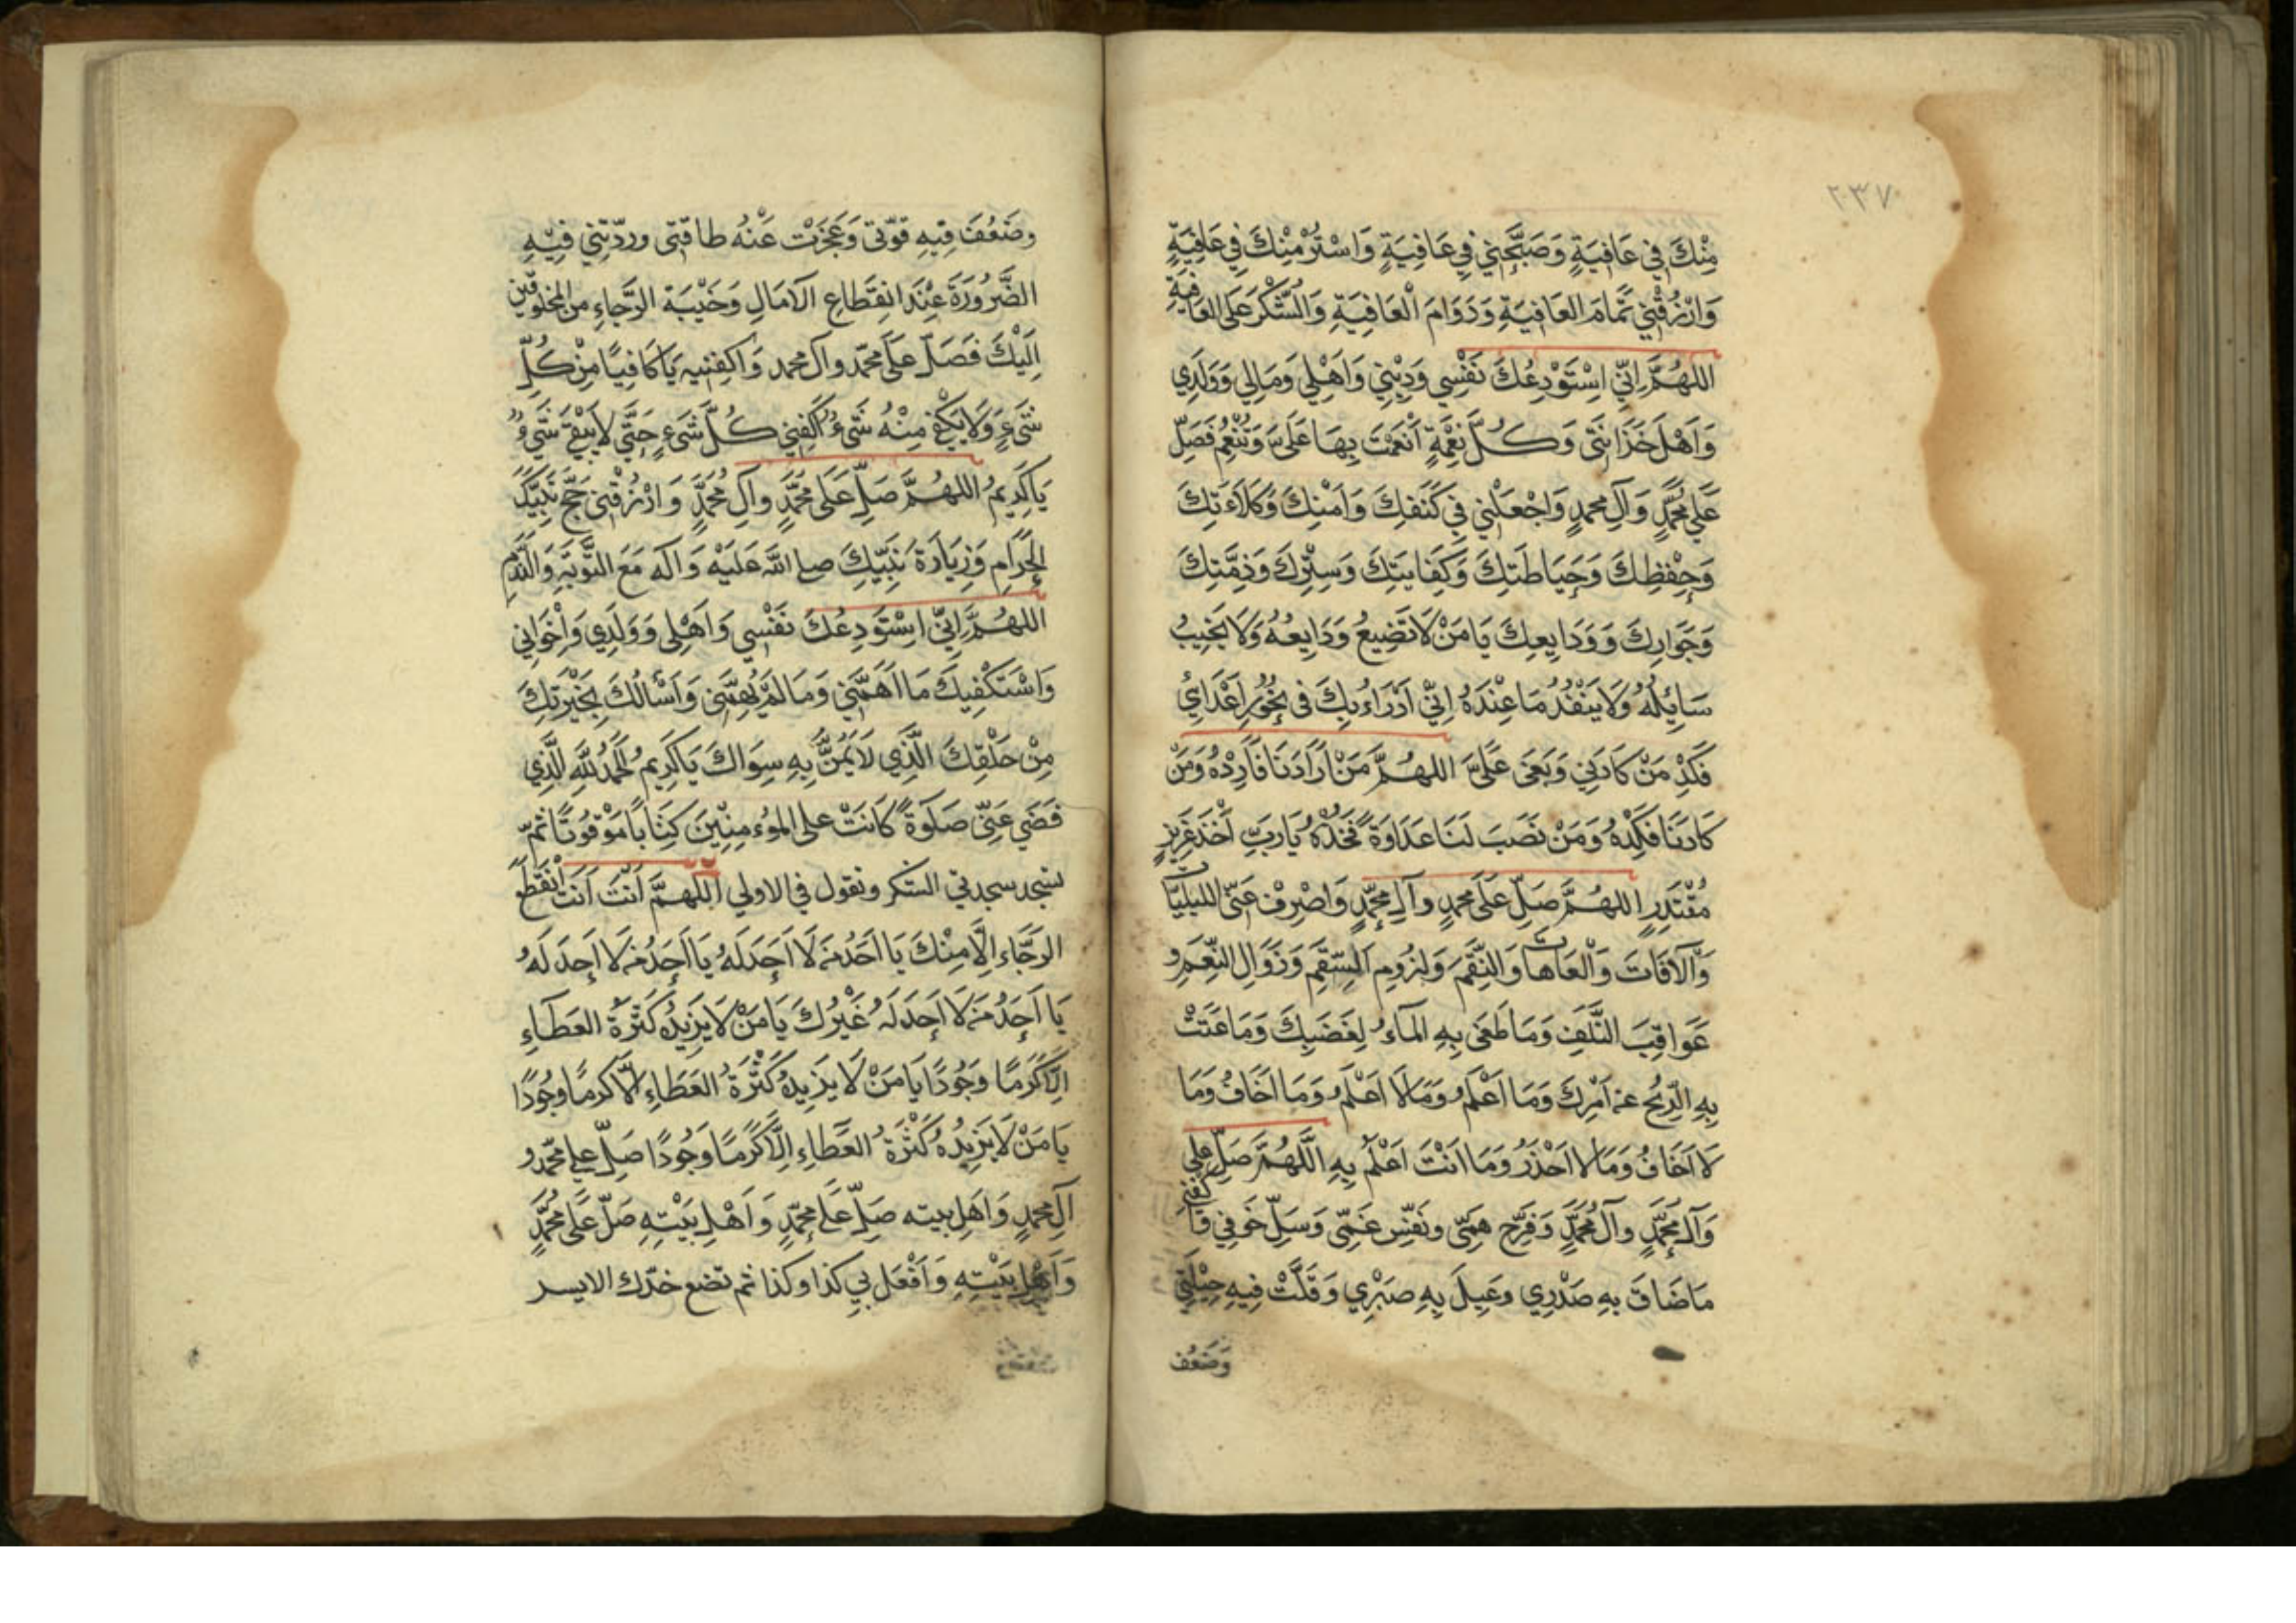 ٢٣٧
مِنْكَ فِي عَافِيَةٍ وَصَبِّحْنِي فِي عَافِيَةٍ وَاسْتُرْ مِنْكَ فِي عَافِيَةٍ
وَارْزُقْنِي تَمَامَ العَافِيَةِ وَدَوَامَ الْعَافِيَةِ وَالشُّكْرَ عَلَى العَافِيَةِ
اللهُمَّ اِنِّي اسْتَوْدِعُكَ نَفْسِي وَدِيْنِي وَاَهْلِي وَمَالِي وَوَلَدِي
وَاَهْلَ حُزَانَتِي وَكُلَّ نِعْمَةٍ اَنْعَمْتَ بِهَا عَلَيَّ وَتُنْعِمُ فَصَلِّ
عَلَى مُحَمَّدٍ وَآلِ مُحَمَّدٍ وَاجْعَلْنِي فِي كَنَفِكَ وَاَمْنِكَ وَكَلَاءَتِكَ
وَحِفْظِكَ وَحِيَاطَتِكَ وَكِفَايَتِكَ وَسِتْرِكَ وَذِمَّتِكَ
وَجَوَارِكَ وَوَدَايِعِكَ يَا مَنْ لَا تَضِيعُ وَدَايِعُهُ وَلَا يَخِيبُ
سَايِلُهُ وَلَا يَنْفَدُ مَا عِنْدَهُ اِنِّي اَدْرَاءُ بِكَ فِي نُحُورِ اَعْدَايِ
فَكِدْ مَنْ كَادَنِي وَبَغَى عَلَيَّ اللهُمَّ مَنْ اَرَادَنَا فَاَرِدْهُ وَمَنْ
كَادَنَا فَكِدْهُ وَمَنْ نَصَبَ لَنَا عَدَاوَةً فَخُذْهُ يَا رَبِّ اَخْذَ عَزِيزٍ
مُقْتَدِرٍ اللهُمَّ صَلِّ عَلَى مُحَمَّدٍ وَآلِ مُحَمَّدٍ وَاصْرِفْ عَنِّي البليّات
وَالْآفَاتَ وَالْعَاهَات وَالنِّقَمَ وَلُزُومِ السَّقَمِ وَزَوَالِ النِّعَمِ وَ
عَوَاقِبَ التَّلَفِ وَمَا طَغَى بِهِ المَاءُ لِغَضَبِكَ وَمَا عَتَتْ
بِهِ الرِّيحُ عَنْ اَمْرِكَ وَمَا اَعْلَمُ وَمَا لَا اَعْلَمُ وَمَا اَخَافُ وَمَا
لَا اَخَافُ وَمَا لَا اَحْذَرُ وَمَا اَنْتَ اَعْلَمُ بِهِ اللّهُمَّ صَلِّ عَلى
وَآلِ مُحَمَّدٍ وَآلِ مُحَمَّدٍ وَفَرِّجْ هَمِّي وَنَفِّسْ غَمِّي وَسَلِّ خَوفِي وَاكفني
مَا ضَاقَ بِهِ صَدْرِي وَعِيلَ بِهِ صَبْرِي وَقَلَّتْ فِيهِ حِيْلَتِي
وَضَعُفَ
وضَعُفَ فِيهِ قوّتي وَعَجَزَتْ عَنْهُ طَاقَتِي وردّتْنِي فِيْهِ
الضَّرُورَةُ عِنْدَ انقِطَاعِ الآمَالِ وَخَيْبَةِ الرَّجَاءِ مِن المخلوقين
اِلَيْكَ فَصَلِّ عَلَى محمّد وآل محمد وَاكفِنيهِ يَا كَافِيًا مِنْ كُلِّ
شَيْءٍ وَلَا يَكْفِ مِنْهُ شَيْءٌ اَكْفِنِي كُلَّ شَيْءٍ حَتَّى لَا يَبْقَى شَيْءٌ
يَا كَرِيمُ اللهُمَّ صَلِّ عَلَى مُحَمَّدٍ وَآلِ مُحَمَّدٍ وَارْزُقْنِي حَجَّ بَيْتِكَ
الحَرَامِ وَزِيَارَةَ نَبِيِّكَ صلى اللهُ عَلَيْهِ وَآله مَعَ التَّوْبَةِ وَالنَّدَمِ
اللهُمَّ اِنِّي اسْتَوْدِعُكَ نَفْسِي وَاَهْلِي وَوَلَدِي وَاِخْوَانِي
وَاسْتَكْفِيكَ مَا اَهَمَّنِي وَمَا لَمْ يُهِمَّنِي وَاَسْاَلُكَ بِخَيْرَتِكَ
مِنْ خَلْقِكَ الَّذِي لَا يَمُنُّ بِهِ سِوَاكَ يَا كَرِيمُ الحَمْدُ للهِ الَّذِي
قَضَى عَنِّي صَلَوةً كَانَتْ على المؤمِنِيْنَ كِتَابًا مَوْقُوتًا ثمّ
تسجد سجدتي الشكر وتقول في الاولي اَللّهُمَّ اَنْتَ اَنْتَ اَنْقَطَعَ
الرَّجَاءِ اِلَّا مِنْكَ يَا اَحَدُ مَنْ لَا اَحَدَ لَهُ يَا اَحَدُ مَنْ لَا اَحَدَ لَهُ
يَا اَحَدُ مَنْ لَا اَحَدَ لَهُ غَيْرُكَ يَا مَنْ لَا يَزِيدُهُ كَثْرَةُ العَطَاءِ
اِلَّا كَرَمًا وَجُودًا يَا مَنْ لَا يَزِيدُهُ كَثْرَةُ العَطَاءِ اِلَّا كَرَمًا وَجُودًا
يَا مَنْ لَا يَزِيدُهُ كَثْرَةُ العَطَاءِ اِلَّا كَرَمًا وَجُودًا صَلِّ على محمّد و
آلِ محمدٍ وَاَهلِ بيته صَلِّ عَلَى محمّدٍ وَاَهْلِ بَيْتِهِ صَلِّ عَلَى مُحَمَّدٍ
وَاَهْلِ بَيْتِهِ وَاَفْعَل بِي كذا وكذا ثم تضع خدّك الايسر